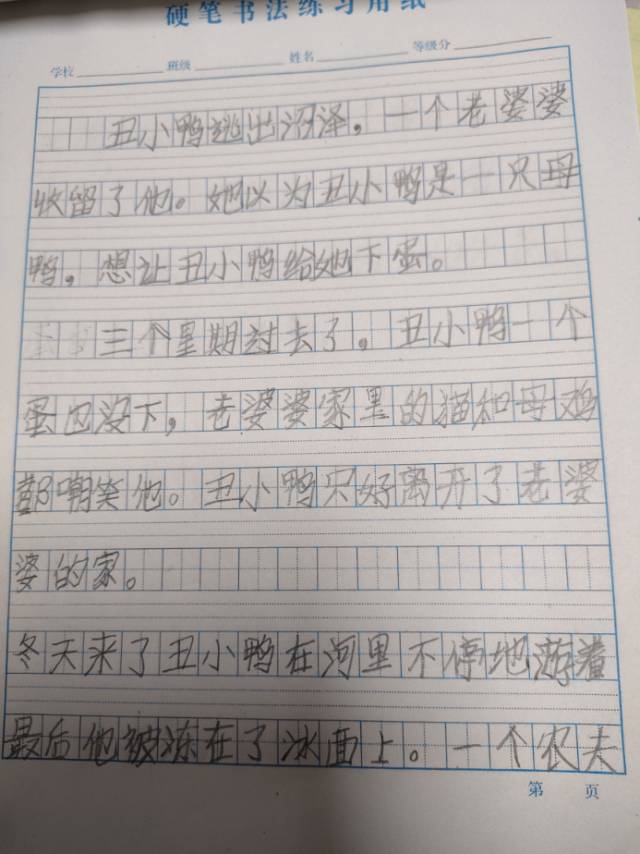 硬笔书法练习用纸
学校 班级 姓名 等级分
丑小鸭逃出沼泽，一个老婆婆
收留了他。她以为丑小鸭是一只母
鸭，想让丑小鸭给她下蛋。
三个星期过去了，丑小鸭一个
蛋也没下，老婆婆家里的猫和母鸡
都嘲笑他。丑小鸭只好离开了老婆
婆的家。
冬天来了丑小鸭在河里不停地游着
最后他被冻在了冰面上。一个农夫
第 页